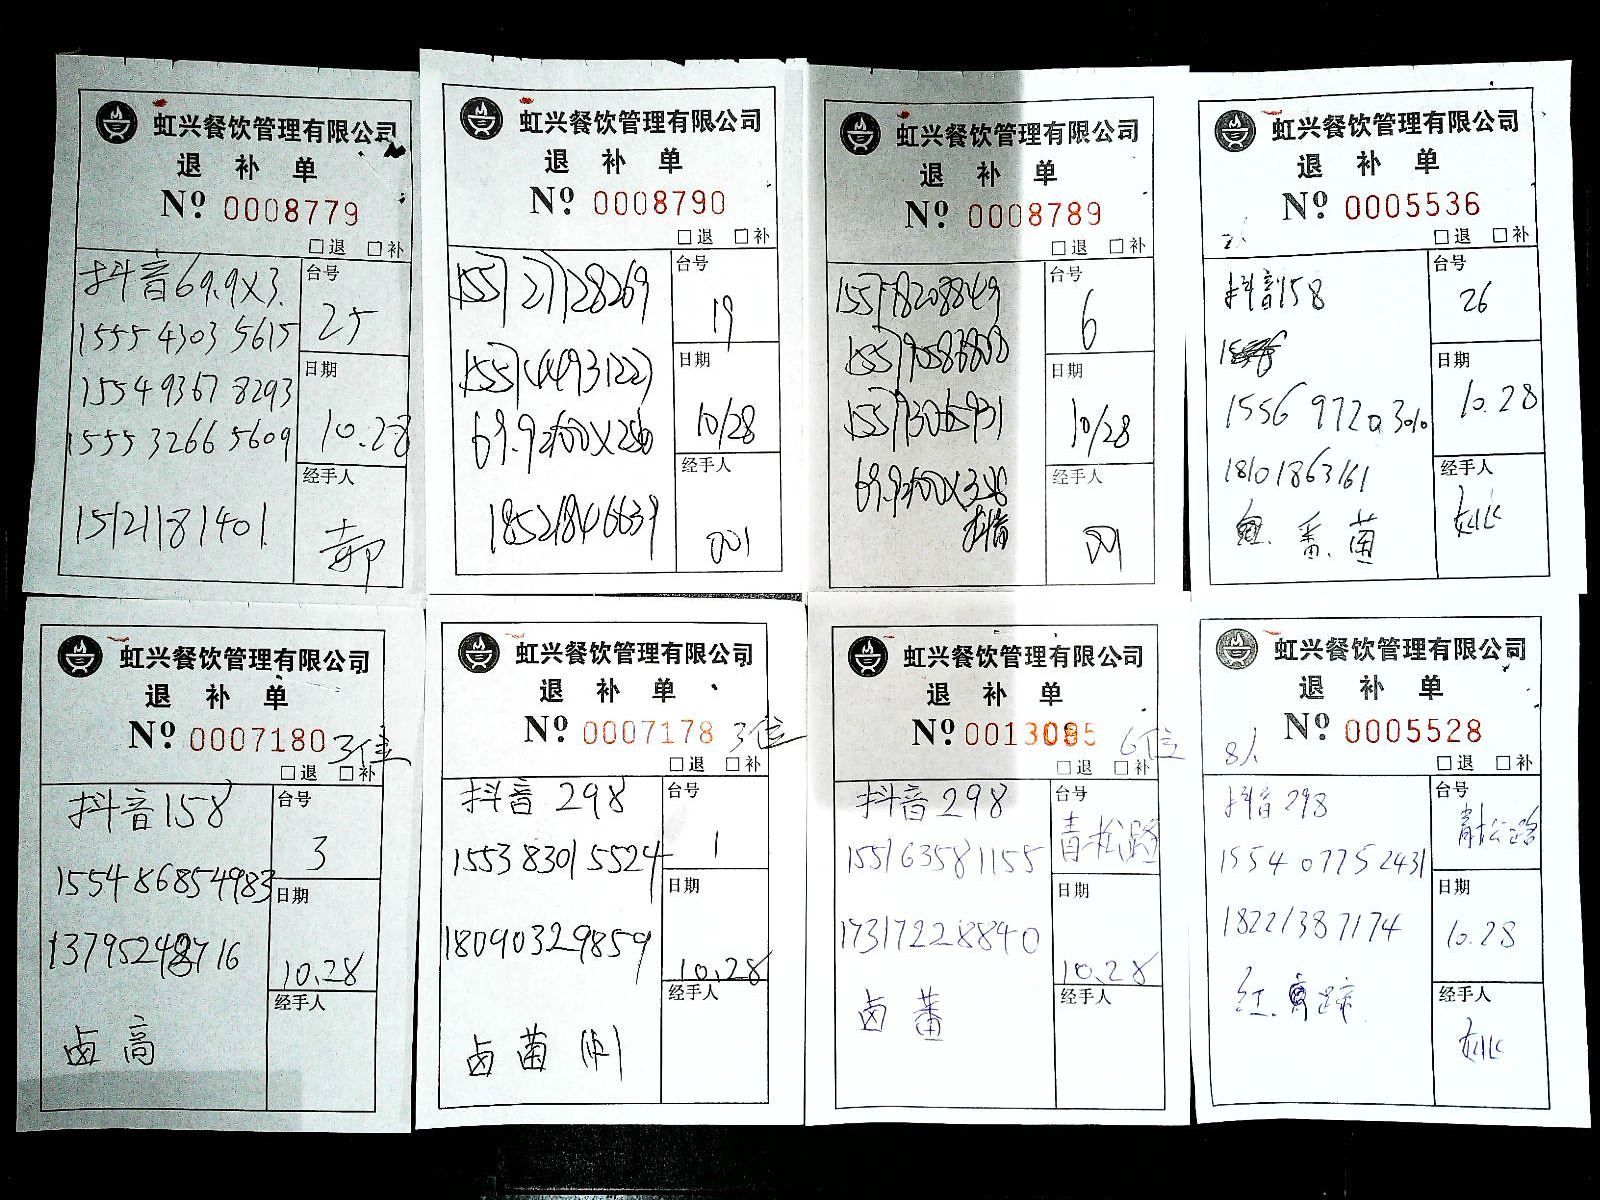 虹兴餐饮管理有限公司
退 补 单
Nº 0008779
□退 □补
抖音69.9X3.
1555 4303 5615
1554 9367 8293
1555 3266 5609
15121181401
台号
25
日期
10.28
经手人
虹兴餐饮管理有限公司
退 补 单
Nº 0008790
□退 □补
69.9
18521846639
台号
19
日期
10/28
经手人
001
虹兴餐饮管理有限公司
退 补 单
Nº 0008789
□退 □补
69.9
抖音
台号
6
日期
10/28
经手人
虹兴餐饮管理有限公司
退 补 单
Nº 0005536
□退 □补
抖音158
1556 972
18101863161
番. 菌
台号
26
日期
10.28
经手人
虹兴餐饮管理有限公司
退 补 单
Nº 0007180 3位
□退 □补
抖音158
1554 86854983
卤 高
台号
3
日期
10.28
经手人
虹兴餐饮管理有限公司
退 补 单
Nº 0007178 3位
□退 □补
抖音 298
1553 8301 5524
18090329859
卤 菌
台号
1
日期
10.28
经手人
虹兴餐饮管理有限公司
退 补 单
Nº 0013085 6位
□退 □补
抖音298
155163581155
17317228840
卤 蕃
台号
青松路
日期
10.28
经手人
虹兴餐饮管理有限公司
退 补 单
Nº 0005528
8人
□退 □补
抖音298
1554 0775 2431
18221387174
红.
台号
青松路
日期
10.28
经手人